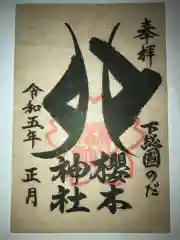 奉拝
下総國のだ
卯
櫻木
神社
令和五年 正月